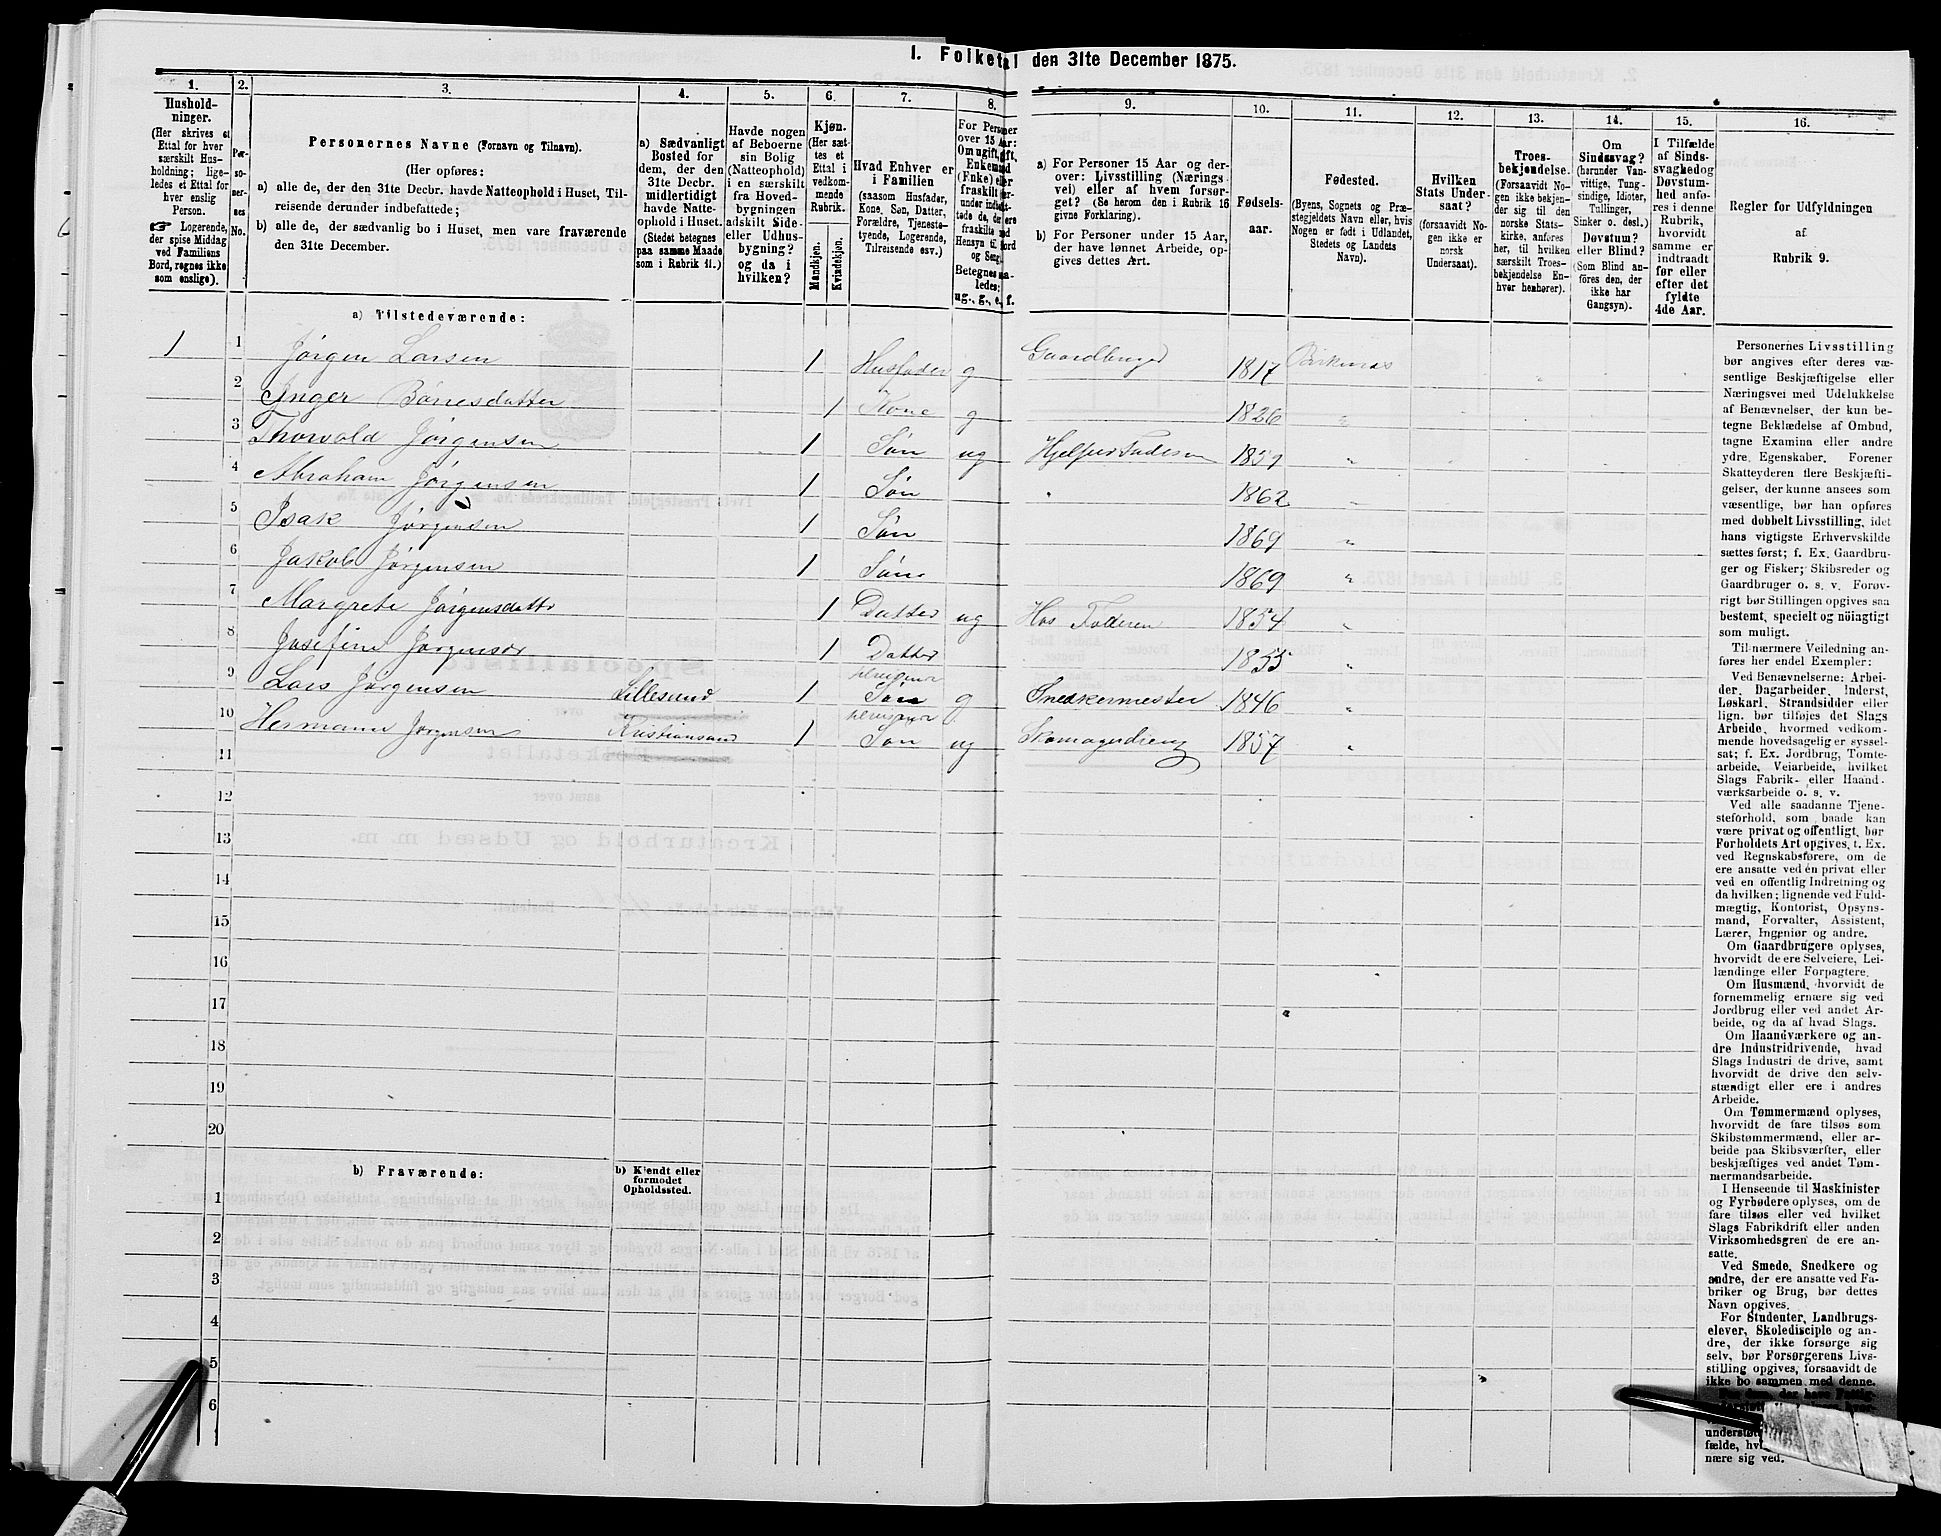 1. Folketal den 31te December 1875.
1. 2. 3. 4. 5. 6. 7. 8. 9. 10. 11. 12. 13. 14. 15. 16.
Hushold-
ninger.
(Her skrives et
Ettal for hver
særskilt Hus-
holdning; lige-
ledes et Ettal for
hver enslig
Person.
☛ Logerende,
der spise Middag
ved Familiens
Bord, regnes ikke
som enslige).
Per-
so-
ner-
nes
No.
Personernes Navne (Fornavn og Tilnavn).
(Her opføres:
a) alle de, der den 31te Decbr. havde Natteophold i Huset, Til-
reisende derunder indbefattede;
b) alle de, der sædvanlig bo i Huset, men vare fraværende
den 31te December.
a) Sædvanligt
Bosted for
dem, der den
31te Decbr.
midlertidigt
havde Natte-
ophold i Huset.
(Stedet betegnes
paa samme Maade
som i Rubrik 11.)
Havde nogen
af Beboerne
sin Bolig
(Natteophold)
i en særskilt
fra Hoved-
bygningen
adskilt Side-
eller Udhus-
bygning?
og da i
hvilken?
Kjøn.
(Her sæt-
tes et
Ettal i
vedkom-
mende
Rubrik.
Mandkjøn.
Kvindekjøn.
Hvad Enhver er
i Familien
(saasom Husfader,
Kone, Søn, Datter,
Forældre, Tjeneste-
tyende, Logerende,
Tilreisende osv.)
For Personer
over 15 Aar:
Om ugift, gift,
Enkemand
(Enke) eller
fraskilt
Betegnes saa-
ledes:
ug., g., e., f.
a) For Personer 15 Aar og der-
over: Livsstilling (Nærings-
vei) eller af hvem forsør-
get? (Se herom den i Rubrik 16
givne Forklaring).
b) For Personer under 15 Aar,
der have lønnet Arbeide, op-
gives dettes Art.
Fødsels-
aar.
Fødested.
(Byens, Sognets og Præ-
stegjeldets Navn eller, hvis
Nogen er født i Udlandet,
Stedets og Landets
Navn).
Hvilken
Stats Under-
saat?
(forsaavidt No-
gen ikke er
norsk
Undersaat).
Troes-
bekjendelse.
(Forsaavidt No-
gen ikke bekjen-
der sig til den
norske Stats-
kirke, anføres
her, til hvilken
særskilt Troes-
bekjendelse En-
hver henhører).
Om
Sindssvag?
(herunder Van-
vittige, Tung-
sindige, Idioter,
Tullinger,
Sinker o. desl.)
Døvstum?
eller Blind?
(Som Blind an-
føres den, der
ikke har
Gangsyn).
I Tilfælde
af Sinds-
svaghed og
Døvstum-
hed anfø-
res i denne
Rubrik,
hvorvidt
samme er
indtraadt
før eller
efter det
fyldte
4de Aar.
Regler for Udfyldningen
af
Rubrik 9.
a) Tilstedeværende:
1 1 Jørgen Larsen 1 Husfader g Gaardbruger 1817 Birkenæs
2 Inger Børresdatter 1 Kone g 1826 "
3 Thorvald Jørgensen 1 Søn ug Hjelper Faderen "
4 Abraham Jørgensen 1 Søn " 1862 "
5 Isak Jørgensen 1 Søn 1869 "
6 Jakob Jørgensen 1 Søn 1869 "
7 Margrete Jørgensdatter 1 Datter ug Hos Faderen 1854 "
8 Josefine 1 Datter 1855 "
9 Lars Jørgensen Lillesand 1 tilreisende Søn g Snedkermester 1846 "
10 Hermann Jørgensen Kristiansand 1 tilreisende Søn ug Skomagerdreng 1857 "
11
12
13
14
15
16
17
18
19
20
b) Fraværende: b) Kjendt eller
formodet
Opholdssted.
1
2
3
4
5
6
Personernes Livsstilling
bør angives efter deres væ-
sentlige Beskjæftigelse eller
Næringsvei med Udelukkelse
af Benævnelser, der kun be-
tegne Beklædelse af Ombud,
tagne Examina eller andre
ydre Egenskaber. Forener
Skatteyderen flere Beskjæfti-
gelser, der kunne ansees som
væsentlige, bør han opføres
med dobbelt Livsstilling, idet
hans vigtigste Erhvervskilde
sættes først; f. Ex. Gaardbru-
ger og Fisker; Skibsreder og
Gaardbruger o. s. v. Forøv-
rigt bør Stillingen opgives saa
bestemt, specielt og nøiagtigt
som muligt.
Til nærmere Veiledning an-
føres her endel Exempler:
Ved Benævnelserne: Arbei-
der, Dagarbeider, Inderst,
Løskarl, Strandsidder eller
lign. bør tilføjes det Slags
Arbeide, hvormed vedkom-
mende hovedsagelig er syssel-
sat; f. Ex. Jordbrug, Tomte-
arbeide, Veiarbeide, hvilket
Slags Fabrik- eller Haand-
værksarbeide o. s. v.
Ved alle saadanne Tjene-
steforhold, som baade kan
være privat og offentligt, bør
Forholdets Art opgives, t. Ex.
ved Regnskabsførere, om de
ere ansatte ved én privat eller
ved en offentlig Indretning og
da hvilken; lignende ved Fuld-
mægtig, Kontorist, Opsyns-
mand, Forvalter, Assistent,
Lærer, Ingeniør og andre.
Om Gaardbrugere oplyses,
hvorvidt de ere Selveiere, Lei-
lændinge eller Forpagtere.
Om Husmænd, hvorvidt de
fornemmelig ernære sig ved
Jordbrug eller ved andet Ar-
beide, og da af hvad Slags.
Om Haandværkere og an-
dre Industridrivende, hvad
Slags Industri de drive, samt
hvorvidt de drive den selv-
stændigt eller ere i andres
Arbeide.
Om Tømmermænd oplyses,
hvorvidt de fare tilsøs som
Skibstømmermænd, eller ar-
beide paa Skibsværfter, eller
beskjæftiges ved andet Tøm-
mermandsarbeide.
I Henseende til Maskinister
og Fyrbødere oplyses, om de
fare tilsøs eller ved hvilket
Slags Fabrikdrift eller anden
Virksomhedsgren de ere an-
satte.
Ved Smede, Snedkere og
andre, der ere ansatte ved Fa-
briker og Brug, bør dettes
Navn opgives.
For Studenter, Landbrugs-
elever, Skoledisciple og an-
dre, der ikke forsørge sig
selv, bør Forsørgerens Livs-
stilling opgives, forsaavidt de
ikke bo sammen med denne.
For dem, der have Fattig-